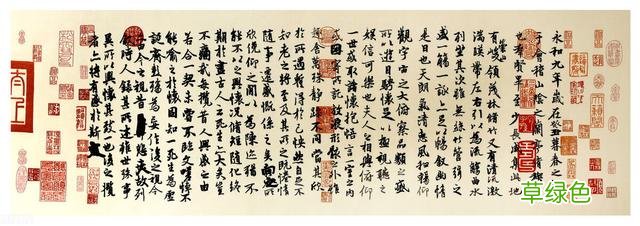 永和九年歲在癸丑暮春之初會
于會稽山陰之蘭亭脩稧事
也群賢畢至少長咸集此地
有崇山峻領茂林脩竹又有清流激
湍暎帶左右引以為流觴曲水
列坐其次雖無絲竹管弦之
盛一觴一詠亦足以暢敘幽情
是日也天朗氣清惠風和暢仰
觀宇宙之大俯察品類之盛
所以遊目騁懷足以極視聽之
娛信可樂也夫人之相與俯仰
一世或取諸懷抱悟言一室之內
或因寄所託放浪形骸之外雖
趣舍萬殊靜躁不同當其欣
於所遇暫得於己怏然自足不
知老之將至及其所之既惓情
隨事遷感慨係之矣向之所
欣俛仰之閒以為陳迹猶不
能不以之興懷況脩短隨化終
期於盡古人云死生亦大矣豈
不痛哉每攬昔人興感之由
若合一契未嘗不臨文嗟悼不
能喻之於懷固知一死生為虛
誕齊彭殤為妄作後之視今
亦由今之視昔悲夫故列
敘時人錄其所述雖世殊事
異所以興懷其致一也後之攬
者亦將有感於斯
草绿色